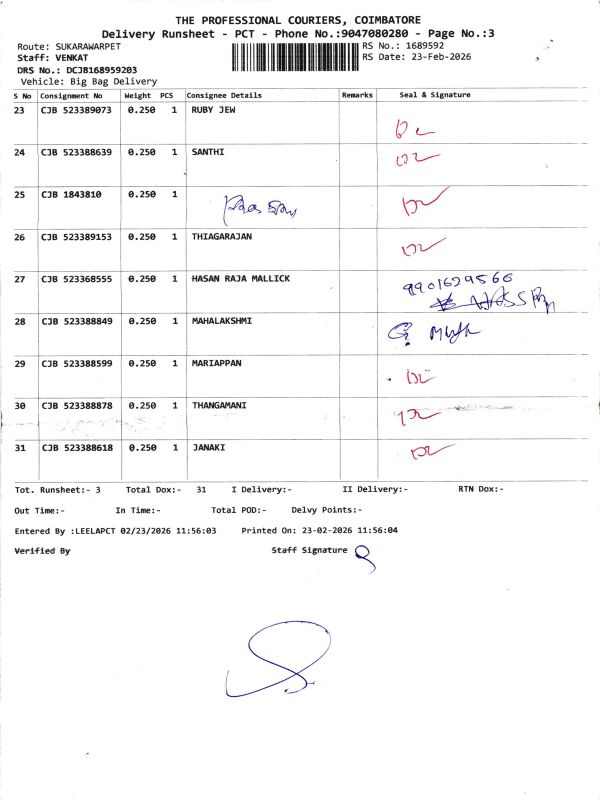 THE PROFESSIONAL COURIERS, COIMBATORE
Delivery Runsheet - PCT - Phone No.:9047080280 - Page No.:3
Route: SUKARAWARPET RS No.: 1689592
Staff: VENKAT RS Date: 23-Feb-2026
DRS No.: DCJB168959203
Vehicle: Big Bag Delivery
S No Consignment No Weight PCS Consignee Details Remarks Seal & Signature
23 CJB 523389073 0.250 1 RUBY JEW
24 CJB 523388639 0.250 1 SANTHI
25 CJB 1843810 0.250 1
26 CJB 523389153 0.250 1 THIAGARAJAN
27 CJB 523368555 0.250 1 HASAN RAJA MALLICK 9901629566
28 CJB 523388849 0.250 1 MAHALAKSHMI
29 CJB 523388599 0.250 1 MARIAPPAN
30 CJB 523388878 0.250 1 THANGAMANI
31 CJB 523388618 0.250 1 JANAKI
Tot. Runsheet:- 3 Total Dox:- 31 I Delivery:- II Delivery:- RTN Dox:-
Out Time:- In Time:- Total POD:- Delvy Points:-
Entered By :LEELAPCT 02/23/2026 11:56:03 Printed On: 23-02-2026 11:56:04
Verified By Staff Signature